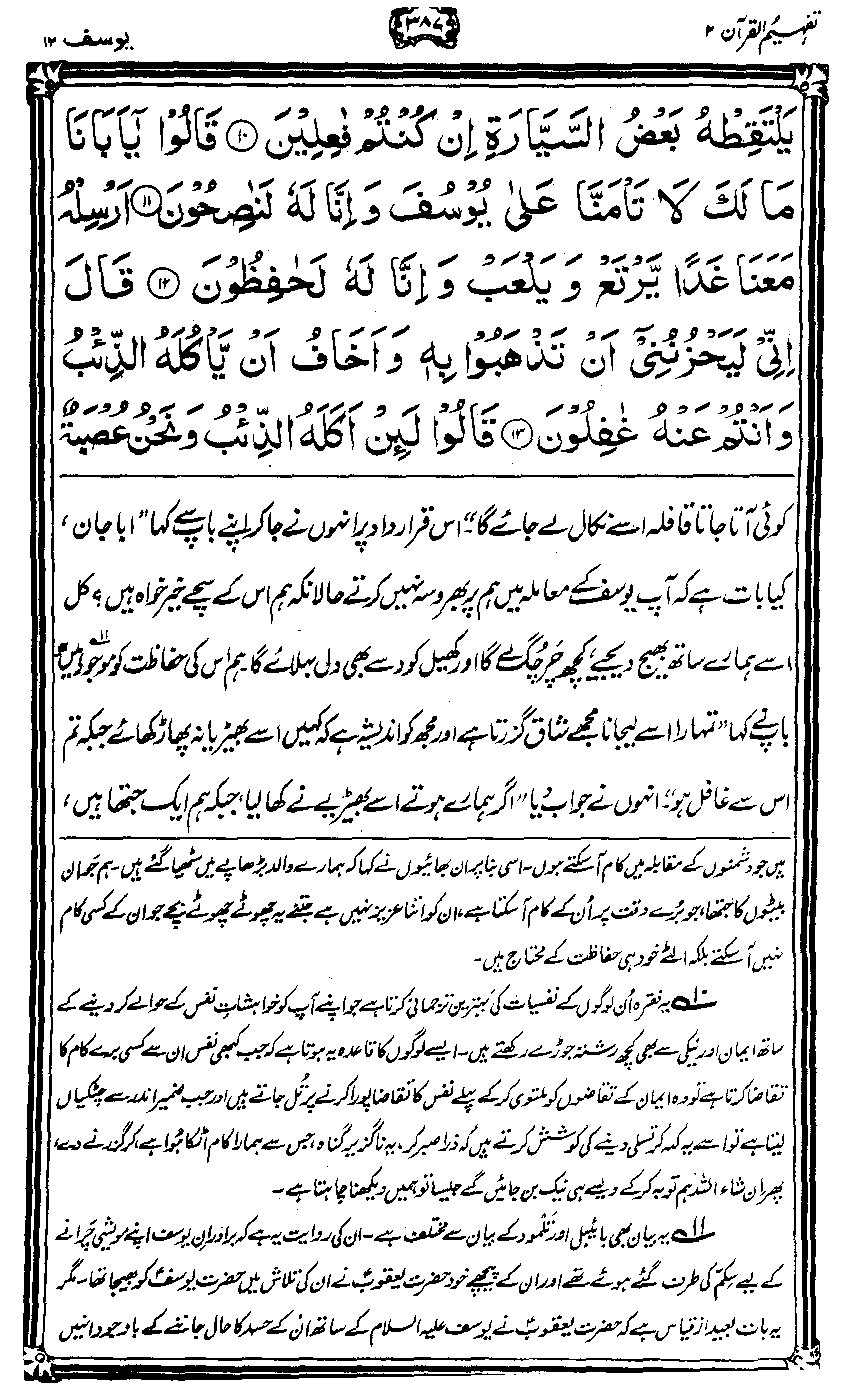 تفہیم القرآن ۲
۳۸۷
یوسف ۱۲
يَلْتَقِطْهُ بَعْضُ السَّيَّارَةِ اِنْ كُنْتُمْ فٰعِلِيْنَ ⑩ قَالُوْا يٰۤاَبَانَا
مَا لَكَ لَا تَاْمَنَّا عَلٰى يُوْسُفَ وَاِنَّا لَهٗ لَنٰصِحُوْنَ ⑪ اَرْسِلْهُ
مَعَنَا غَدًا يَّرْتَعْ وَيَلْعَبْ وَاِنَّا لَهٗ لَحٰفِظُوْنَ ⑫ قَالَ
اِنِّيْ لَيَحْزُنُنِيْۤ اَنْ تَذْهَبُوْا بِهٖ وَاَخَافُ اَنْ يَّاْكُلَهُ الذِّئْبُ
وَاَنْتُمْ عَنْهُ غٰفِلُوْنَ ⑬ قَالُوْا لَئِنْ اَكَلَهُ الذِّئْبُ وَنَحْنُ عُصْبَةٌ
کوئی آتا جاتا قافلہ اسے نکال لے جائے گا"۔ اس قرارداد پر انہوں نے جا کر اپنے باپ سے کہا "ابا جان،
کیا بات ہے کہ آپ یوسف کے معاملہ میں ہم پر بھروسہ نہیں کرتے حالانکہ ہم اس کے سچے خیر خواہ ہیں؟ کل
اسے ہمارے ساتھ بھیج دیجیے، کچھ چر چگ لے گا اور کھیل کود سے بھی دل بہلائے گا۱۱۔ ہم اس کی حفاظت کو موجود ہیں"۔
باپ نے کہا "تمہارا اسے لیجانا مجھے شاق گزرتا ہے اور مجھ کو اندیشہ ہے کہ کہیں اسے بھیڑیا نہ پھاڑ کھائے جبکہ تم
اس سے غافل ہو"۔ انہوں نے جواب دیا "اگر ہمارے ہوتے اسے بھیڑیے نے کھا لیا، جبکہ ہم ایک جتھا ہیں،
ہیں جو دشمنوں کے مقابلہ میں کام آ سکتے ہوں۔ اسی بنا پر ان بھائیوں نے کہا کہ ہمارے والد بڑھاپے میں سٹھیا گئے ہیں۔ ہم جوان
بیٹوں کا جتھا، جو بُرے وقت پر اُن کے کام آ سکتا ہے، ان کو اتنا عزیز نہیں ہے جتنے یہ چھوٹے چھوٹے بچے جو ان کے کسی کام
نہیں آ سکتے بلکہ الٹے خود ہی حفاظت کے محتاج ہیں۔
۱۰ یہ فقرہ اُن لوگوں کے نفسیات کی بہترین ترجمانی کرتا ہے جو اپنے آپ کو خواہشاتِ نفس کے حوالے کر دینے کے
ساتھ ایمان اور نیکی سے بھی کچھ رشتہ جوڑے رکھتے ہیں۔ ایسے لوگوں کا قاعدہ یہ ہوتا ہے کہ جب کبھی نفس ان سے کسی برے کام کا
تقاضا کرتا ہے تو وہ ایمان کے تقاضوں کو ملتوی کر کے پہلے نفس کا تقاضا پورا کرنے پر تُل جاتے ہیں اور جب ضمیر اندر سے چٹکیاں
لیتا ہے تو اسے یہ کہہ کر تسلی دینے کی کوشش کرتے ہیں کہ ذرا صبر کر، یہ ناگزیر گناہ، جس سے ہمارا کام اٹکا ہوا ہے، کر گزرنے دے،
پھر ان شاء اللہ ہم توبہ کر کے ویسے ہی نیک بن جائیں گے جیسا تو ہمیں دیکھنا چاہتا ہے۔
۱۱ یہ بیان بھی بائیبل اور تلمود کے بیان سے مختلف ہے۔ ان کی روایت یہ ہے کہ برادرانِ یوسف اپنے مویشی چَرانے
کے لیے سِکّم کی طرف گئے ہوئے تھے اور ان کے پیچھے خود حضرت یعقوبؑ نے ان کی تلاش میں حضرت یوسفؑ کو بھیجا تھا۔ مگر
یہ بات بعید از قیاس ہے کہ حضرت یعقوبؑ نے یوسف علیہ السلام کے ساتھ ان کے حسد کا حال جاننے کے باوجود انہیں